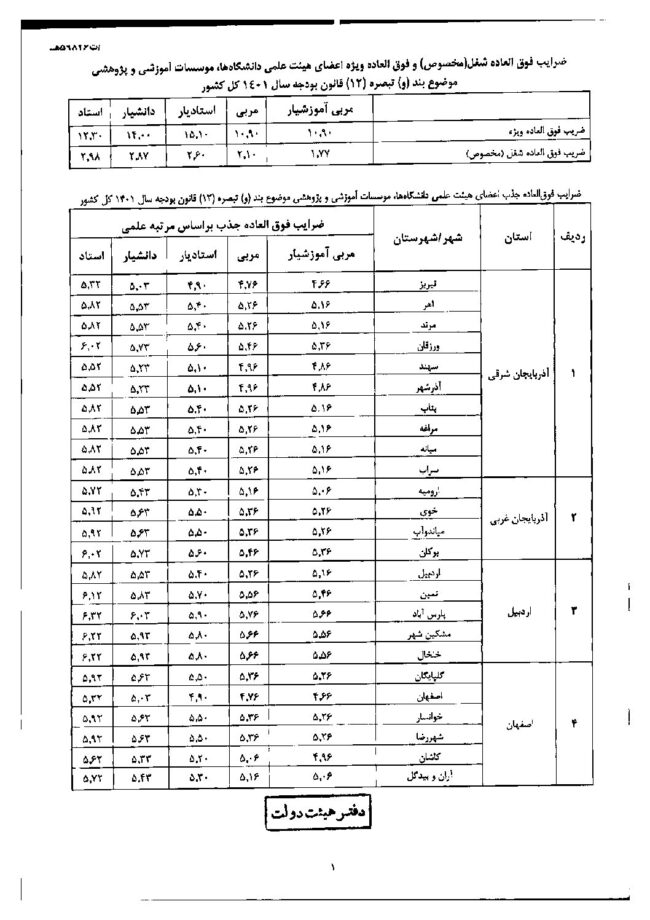 ضرایب فوق العاده شغل(مخصوص) و فوق العاده ویژه اعضای هیئت علمی دانشگاه‌ها، موسسات آموزشی و پژوهشی
موضوع بند (و) تبصره (۱۲) قانون بودجه سال ۱۴۰۱ کل کشور
مربی آموزشیار مربی استادیار دانشیار استاد
ضریب فوق العاده ویژه ۱۰,۹۰ ۱۰,۹۰ ۱۵,۱۰ ۱۴,۰۰ ۱۳,۳۰
ضریب فوق العاده شغل (مخصوص) ۱,۷۷ ۲,۱۰ ۲,۶۰ ۲,۸۷ ۲,۹۸
ضرایب فوق‌العاده جذب اعضای هیئت علمی دانشگاه‌ها، موسسات آموزشی و پژوهشی موضوع بند (و) تبصره (۱۲) قانون بودجه سال ۱۴۰۱ کل کشور
ردیف استان شهر/شهرستان ضرایب فوق العاده جذب براساس مرتبه علمی
مربی آموزشیار مربی استادیار دانشیار استاد
تبریز ۴,۶۶ ۴,۷۶ ۴,۹۰ ۵,۰۳ ۵,۳۲
اهر ۵,۱۶ ۵,۲۶ ۵,۴۰ ۵,۵۳ ۵,۸۲
مرند ۵,۱۶ ۵,۲۶ ۵,۴۰ ۵,۵۳ ۵,۸۲
ورزقان ۵,۳۶ ۵,۴۶ ۵,۶۰ ۵,۷۳ ۶,۰۲
۱ آذربایجان شرقی سهند ۴,۸۶ ۴,۹۶ ۵,۱۰ ۵,۲۳ ۵,۵۲
آذرشهر ۴,۸۶ ۴,۹۶ ۵,۱۰ ۵,۲۳ ۵,۵۲
بناب ۵,۱۶ ۵,۲۶ ۵,۴۰ ۵,۵۳ ۵,۸۲
مراغه ۵,۱۶ ۵,۲۶ ۵,۴۰ ۵,۵۳ ۵,۸۲
میانه ۵,۱۶ ۵,۲۶ ۵,۴۰ ۵,۵۳ ۵,۸۲
سراب ۵,۱۶ ۵,۲۶ ۵,۴۰ ۵,۵۳ ۵,۸۲
ارومیه ۵,۰۶ ۵,۱۶ ۵,۳۰ ۵,۴۳ ۵,۷۲
۲ آذربایجان غربی خوی ۵,۲۶ ۵,۳۶ ۵,۵۰ ۵,۶۳ ۵,۹۲
میاندوآب ۵,۲۶ ۵,۳۶ ۵,۵۰ ۵,۶۳ ۵,۹۲
بوکان ۵,۳۶ ۵,۴۶ ۵,۶۰ ۵,۷۳ ۶,۰۲
اردبیل ۵,۱۶ ۵,۲۶ ۵,۴۰ ۵,۵۳ ۵,۸۲
نمین ۵,۴۶ ۵,۵۶ ۵,۷۰ ۵,۸۳ ۶,۱۲
۳ اردبیل پارس آباد ۵,۶۶ ۵,۷۶ ۵,۹۰ ۶,۰۳ ۶,۳۲
مشکین شهر ۵,۵۶ ۵,۶۶ ۵,۸۰ ۵,۹۳ ۶,۲۲
خلخال ۵,۵۶ ۵,۶۶ ۵,۸۰ ۵,۹۳ ۶,۲۲
گلپایگان ۵,۲۶ ۵,۳۶ ۵,۵۰ ۵,۶۳ ۵,۹۲
اصفهان ۴,۶۶ ۴,۷۶ ۴,۹۰ ۵,۰۳ ۵,۳۲
۴ اصفهان خوانسار ۵,۲۶ ۵,۳۶ ۵,۵۰ ۵,۶۳ ۵,۹۲
شهررضا ۵,۲۶ ۵,۳۶ ۵,۵۰ ۵,۶۳ ۵,۹۲
کاشان ۴,۹۶ ۵,۰۶ ۵,۲۰ ۵,۳۳ ۵,۶۲
آران و بیدگل ۵,۰۶ ۵,۱۶ ۵,۳۰ ۵,۴۳ ۵,۷۲
دفتر هیئت دولت
۱